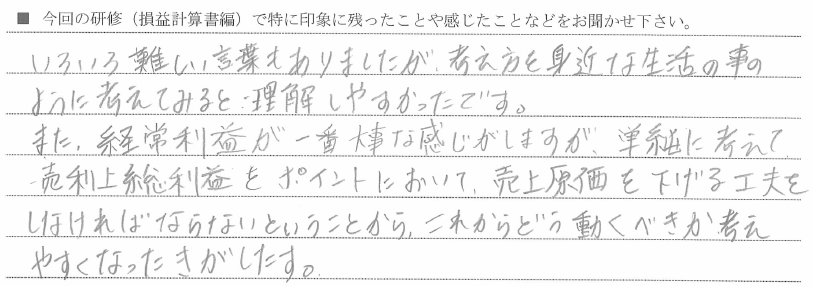 ■ 今回の研修（損益計算書編）で特に印象に残ったことや感じたことなどをお聞かせ下さい。
いろいろ難しい言葉もありましたが、考え方を身近な生活の事の
ように考えてみると理解しやすかったです。
また、経常利益が一番大事な感じがしますが、単純に考えて、
売利上総利益をポイントにおいて、売上原価を下げる工夫を
しなければならないということから、これからどう動くべきか考え
やすくなったきがしたす。